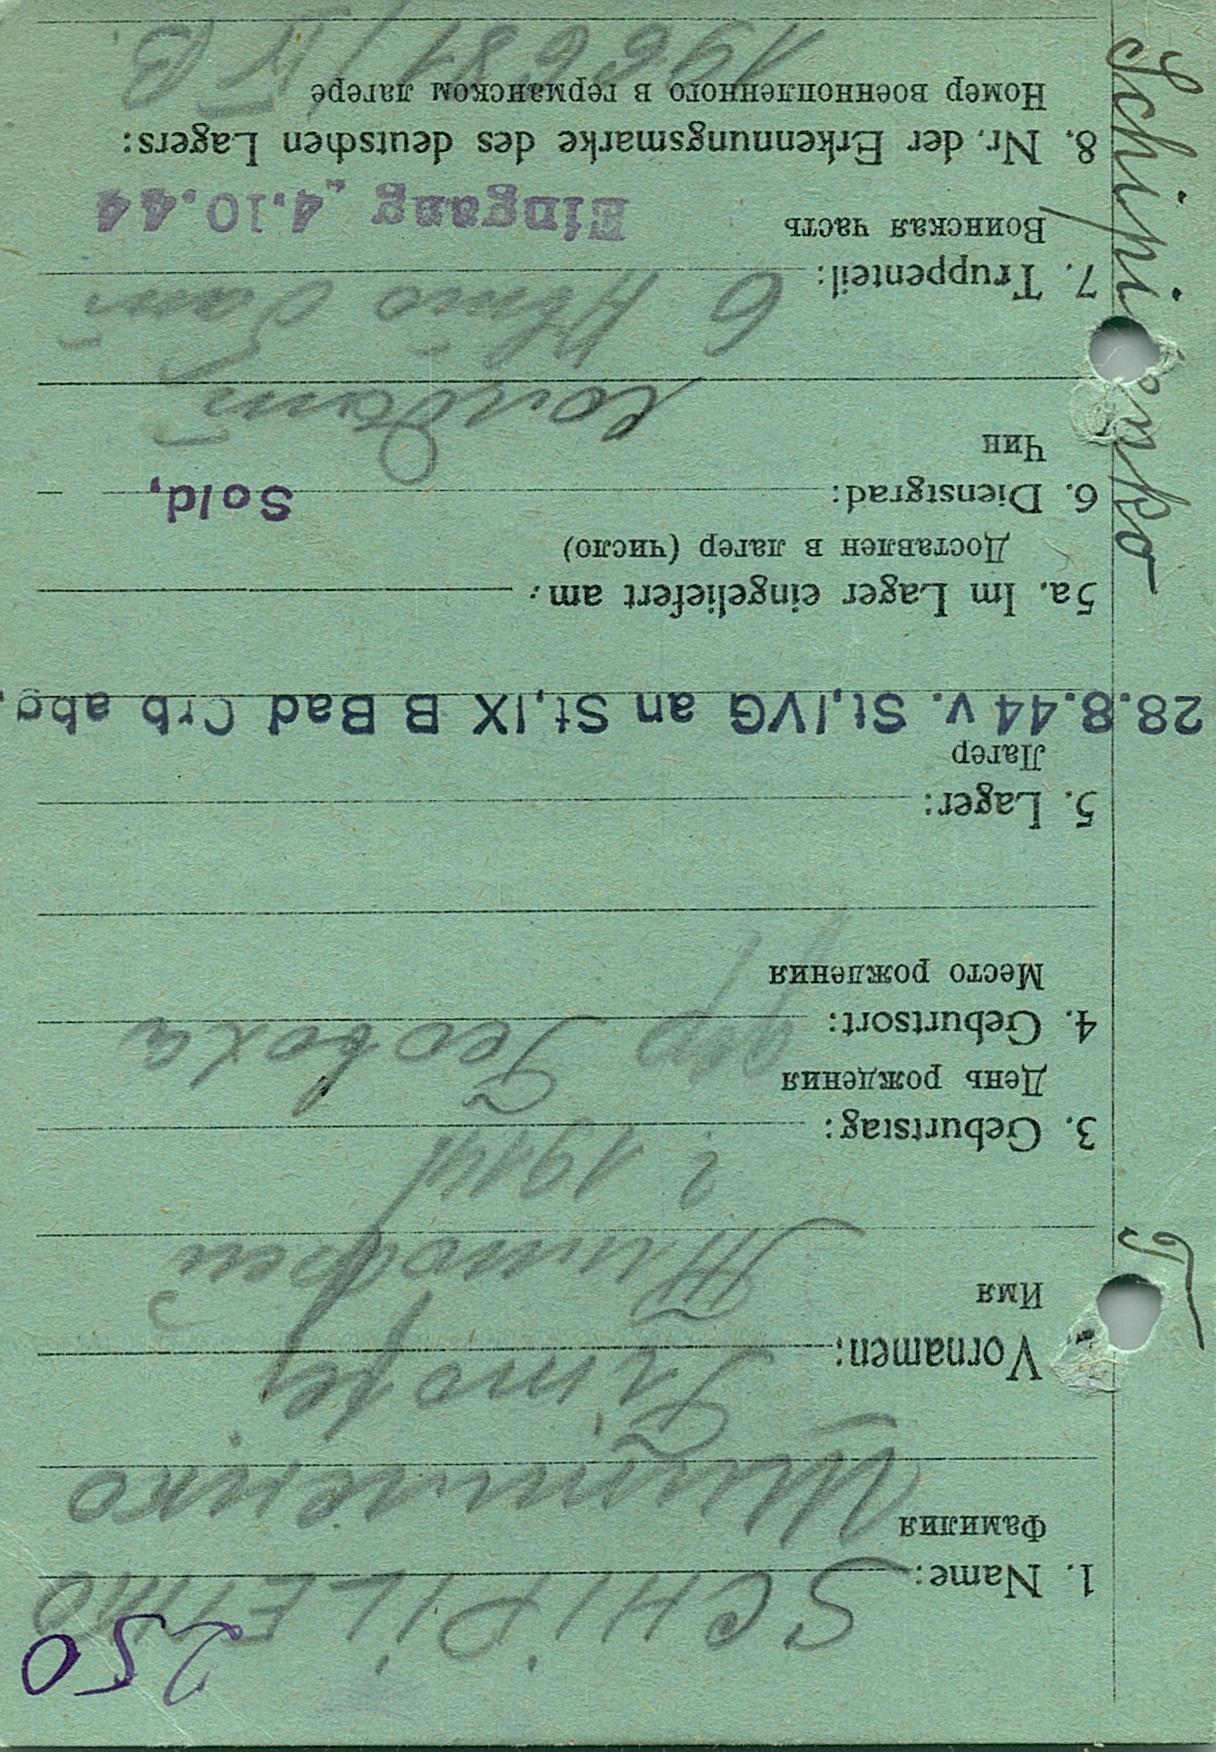 250
1. Name: SCHIPILENKO
Фамилия Шипиленко
Vornamen: Timofej
Имя Тимофей
3. Geburtstag: 1914
День рождения
4. Geburtsort:
Место рождения
5. Lager:
Лагер
28.8.44 v. St,IVG an St,IX B Bad Orb abg.
5a. Im Lager eingeliefert am:
Доставлен в лагер (число)
6. Dienstgrad: Sold,
Чин солдат
7. Truppenteil: 6
Воинская часть Eingang 4.10.44
8. Nr. der Erkennungsmarke des deutschen Lagers:
Номер военнопленного в германском лагере
196681/IV B.
Schipi enko
T